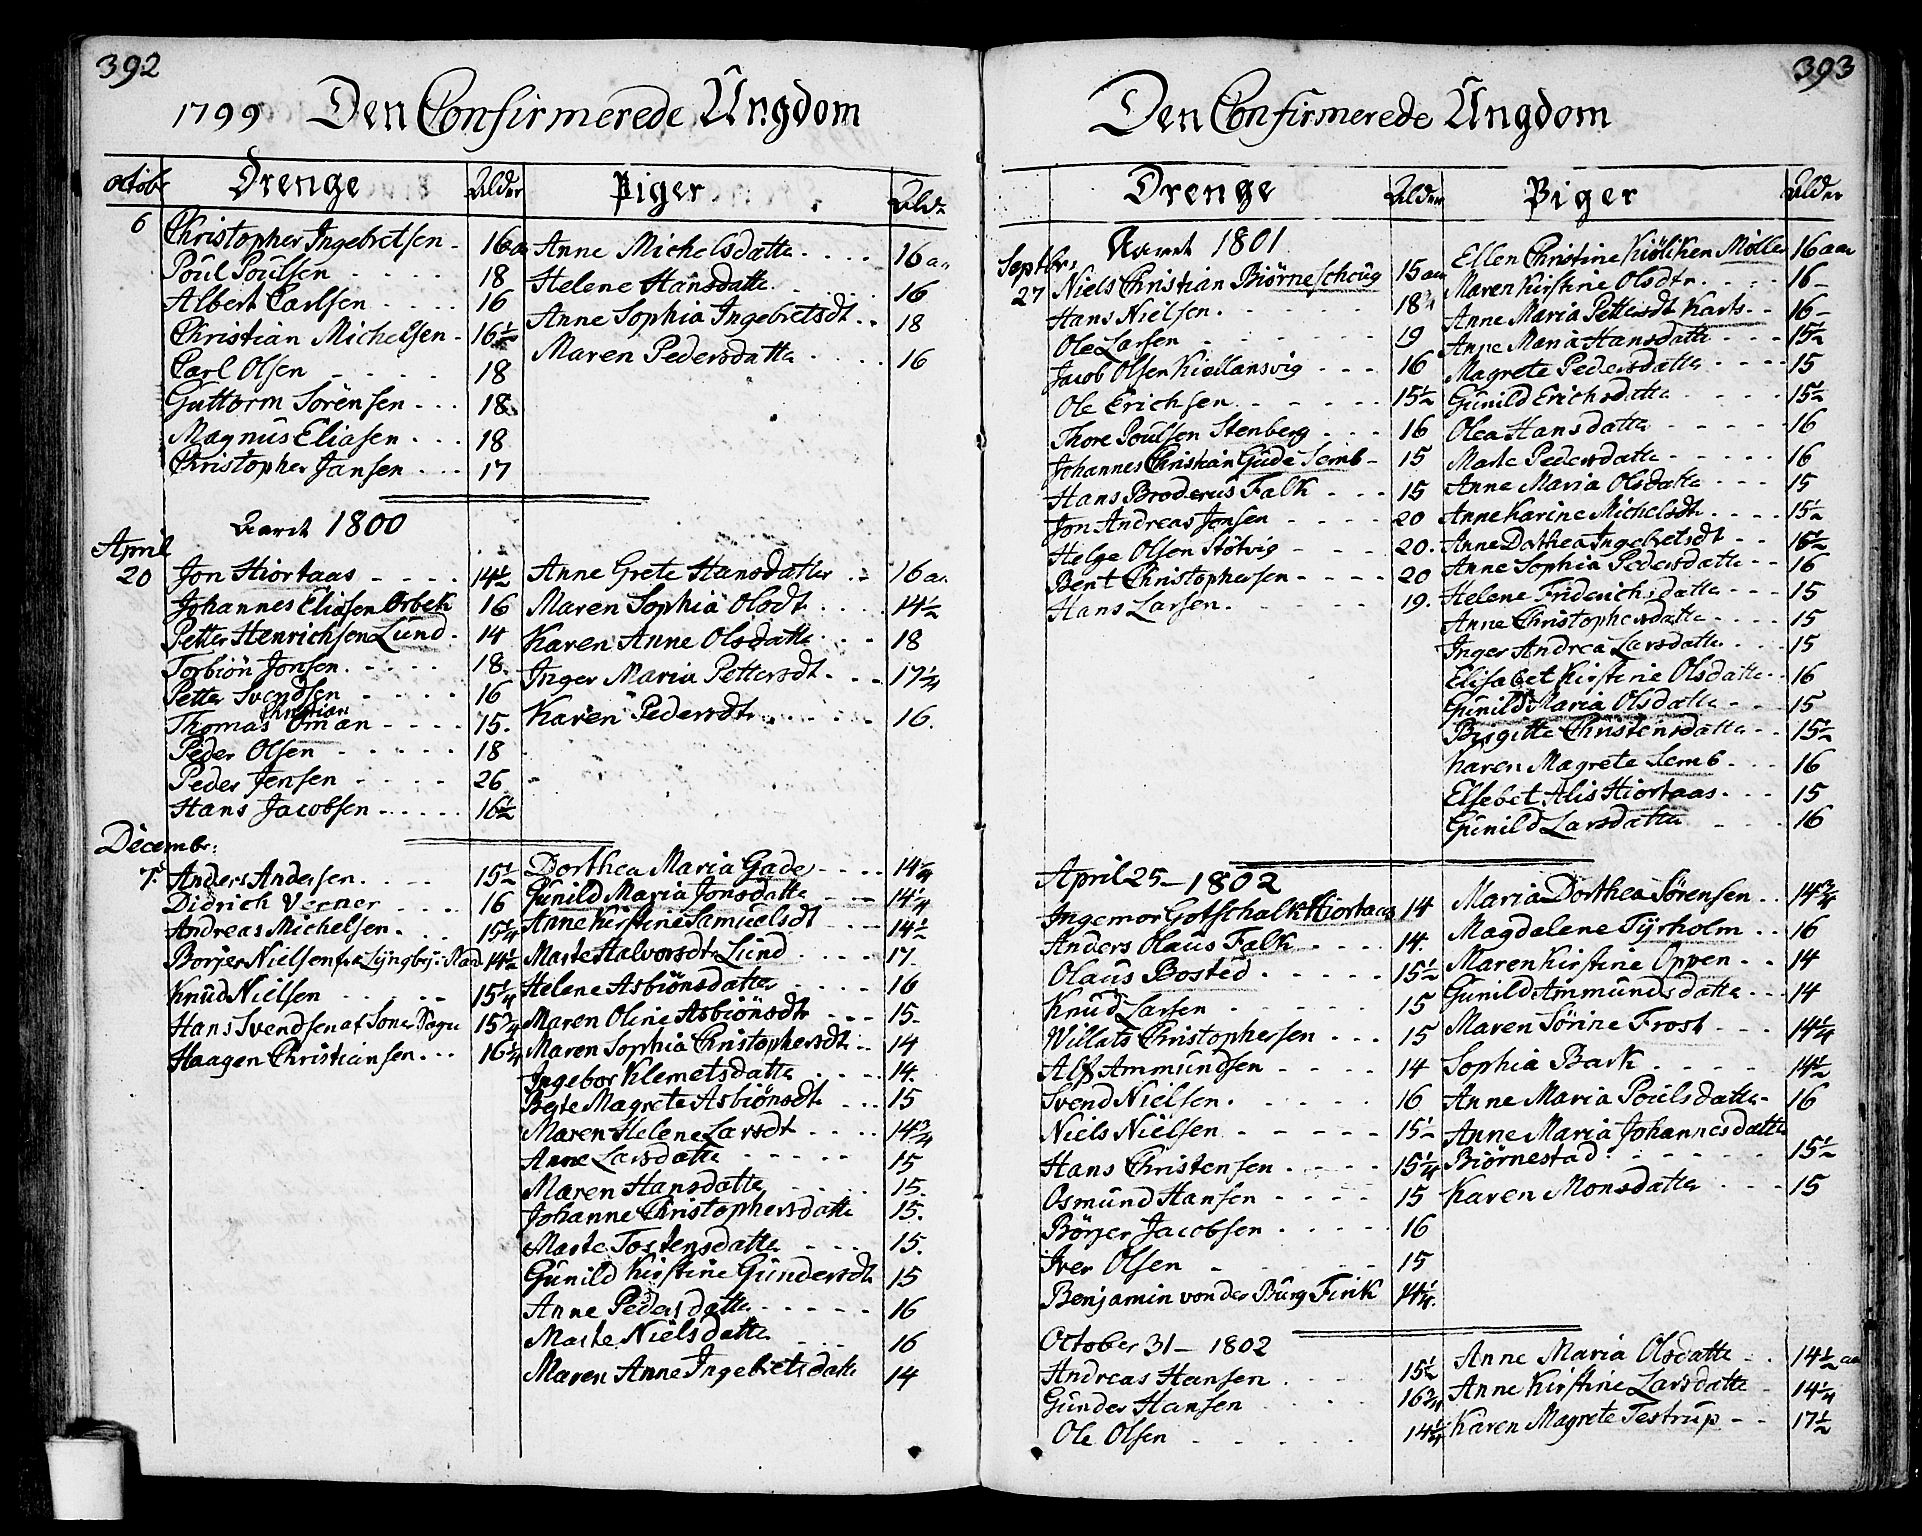 392
1799 Den Confirmerede Ungdom
Octobr Drenge Alder Piger Alder
6 Christopher Ingebretsen 16 aar
Poul Poulsen 18
Albert Carlsen 16
Christian Michelsen 16 1/2
Carl Olsen 18
Guttorm Sörensen 18
Magnus Eliasen 18
Christopher Jansen 17
Anne Michelsdatter 16 aar
Helene Hansdatter 16
Anne Sophia Ingebretsdt. 18
Maren Pedersdatter 16
Aaret 1800
April
20 Jon Hiortaas 14 1/2
Johannes Eliasen Orbek 16
Petter Henrichsen Lund 14
Torbiön Jonsen 18
Petter Svendsen 16
Thomas Christian Oman 15
Peder Olsen 18
Peder Jensen 26
Hans Jacobsen 16 1/2
Anne Grete Hansdatter 16 aar
Maren Sophia Olsdt. 14 1/2
Karen Anne Olsdatter 18
Inger Maria Pettersdt. 17 1/4
Karen Pedersdtr. 16
Decembr:
7. Anders Andersen 15 1/2
Didrich Verner 16
Andreas Michelsen 15 1/4
Börger Nielsen fra Lyngbye 14 1/2
Knud Nielsen 15 1/4
Hans Svendsen af Sone Sogn 15 3/4
Haagen Christiansen 16 1/4
Dorthea Maria Gade 14 1/4
Gunild Maria Jonsdatter 14 1/4
Anne Kirstine Samuelsdt. 14 1/2
Marte Halvorsdtr. Lund 17
Helene Asbiönsdatter 16
Maren Oline Asbiönsdtr. 15
Maren Sophia Christophersdt. 14
Ingebor Klemetsdatter 14
Berte Magrete Asbiönsdt. 15
Maren Helene Larsdt. 14 3/4
Anne Larsdatter 15
Maren Hansdatter 15
Johanne Christophersdatter 15
Marte Tostensdatter 15
Gunild Kirstine Gundersdtr 15
Anne Pedersdatter 16
Marte Nielsdatter 16
Maren Anne Ingebretsdatter 14
393
Den Confirmerede Ungdom
Drenge Alder Piger Alder
Aaret 1801
Septbr:
27 Niels Christian Biörneschoug 15 aar
Hans Nielsen 18 1/4
Ole Larsen 19
Jacob Olsen Kiellansvig 16
Ole Erichsen 15 1/2
Thore Poulsen Stenberg 16
Johannes Christian Gude Semb 15
Hans Broderus Falk 15
Jon Andreas Jonsen 20
Helge Olsen Stötvig 20
Bent Christophersen 20
Hans Larsen 19
Ellen Christine Kiölsken Möller 16 aar
Maren Kirstine Olsdtr. 16
Anne Maria Pettersdt Karls 16
Anne Maria Hansdatter 15 1/2
Magrete Pedersdatter 15
Gunild Erichsdatter 15 1/2
Olea Hansdatter 16
Marte Pedersdatter 16
Anne Maria Olsdatter 15
Anne Karine Michelsdt. 15 1/2
Anne Dorthea Ingebretsdt 16 1/2
Anne Sophia Pedersdatter 16
Helene Friderichsdatter 15
Anne Christophersdatter 15
Inger Andrea Larsdatter 15
Elisabet Kirstine Olsdatter 16
Gunild Maria Olsdatter 15
Birgitte Christensdatter 15 1/2
Karen Magrete Semb 16
Elsebet Alis Hiortaas 15
Gunild Larsdatter 16
April 25 - 1802
Ingemor Gotschalk Hiortaas 14
Anders Olaus Falk 14
Olaus Bosted 15 1/2
Knud Larsen 15
Willats Christophersen 15
Alf Ammundsen 14
Svend Nielsen 16
Niels Nielsen 15 1/2
Hans Christensen 15 1/4
Osmund Hansen 15
Börger Jacobsen 16
Iver Olsen 15
Benjamin von der Burg Fink 14 1/4
Maria Dorthea Sörensen 14 3/4
Magdalene Tyrholm 16
Maren Kirstine Oppen 14
Gunild Ammundsdatter 14
Maren Sörine Frost 14 1/4
Sophia Bark 14 1/2
Anne Maria Poulsdatter 16
Anne Maria Johannesdatter
Biörnestad 15 1/2
Karen Monsdatter 15
October 31 - 1802
Andreas Hansen 15 1/2
Gunder Hansen 16 3/4
Ole Olsen 14 1/4
Anne Maria Olsdatter 14 1/2 aar
Anne Kirstine Larsdatter 14 1/4
Karen Magrete Testrup 17 1/2